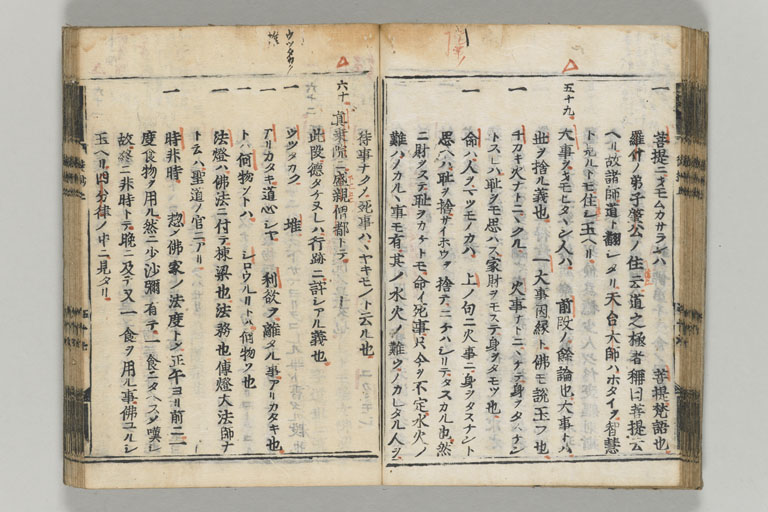 一 菩提ニヲモムカサラレハ 菩提梵語也
羅什ノ弟子肇公ノ住云道之極者稱曰菩提云
ヘリ故諸師道ト翻シタリ天台大師ハホタイヲ智慧
トモルトモ住シ玉ヘリ
五十九 大事ヲヲモヒタヽン人ハ 前段ノ餘論也大事トハ
世ヲ捨ル義也 一大事因縁ト佛モ説玉フ也
一 チカキ火ナトニニクル 火事ナトニハテ身ヲタハナシ
トスレハ耻ヲモ思ハス家財ヲモステ身ヲタモツ也
一 命ハ人ヲマツモノカハ 上ノ句ニ火事ニ身ヲタスナント
思ヘハ耻ヲ捨サイホウヲ捨テニケハシリテタスカル也然
ニ財ヲステ耻ヲカケトモ命イ死事凡今ヲ不定水火ノ
難ハノカルヽ事モ有其ノ水火ノ難ヲノカレタル人ヲ
待事ナクノ死事ハハヤキモノト云ル也
六十 真乗院ニ盛親僧都トテ
此段德タケヌレハ行跡ニ計シアル義也
一 ウツタカク 堆
一 アリカタキ道心シヤ 利欲ヲ離タル事アリカタキ也
一 トハ何物ソトハ シロウルリトハ何物ソ也
一 法燈ハ佛法ニ付テ棟梁也法務也傳燈大法師ナ
トヽ云ハ聖道ノ官ニアリ
一 時非時 惣ノ佛家ノ法度トシ正午ヨリ前ニ二
度食物ヲ用ル然ニ少沙彌有テ一食ニタヘスヲ嘆シ
故終ニ非時トテ晩ニ及テ又一食ヲ用ル事佛ユルシ
玉ヘリ四分律ノ中ニ見タリ
ウツタカク
堆